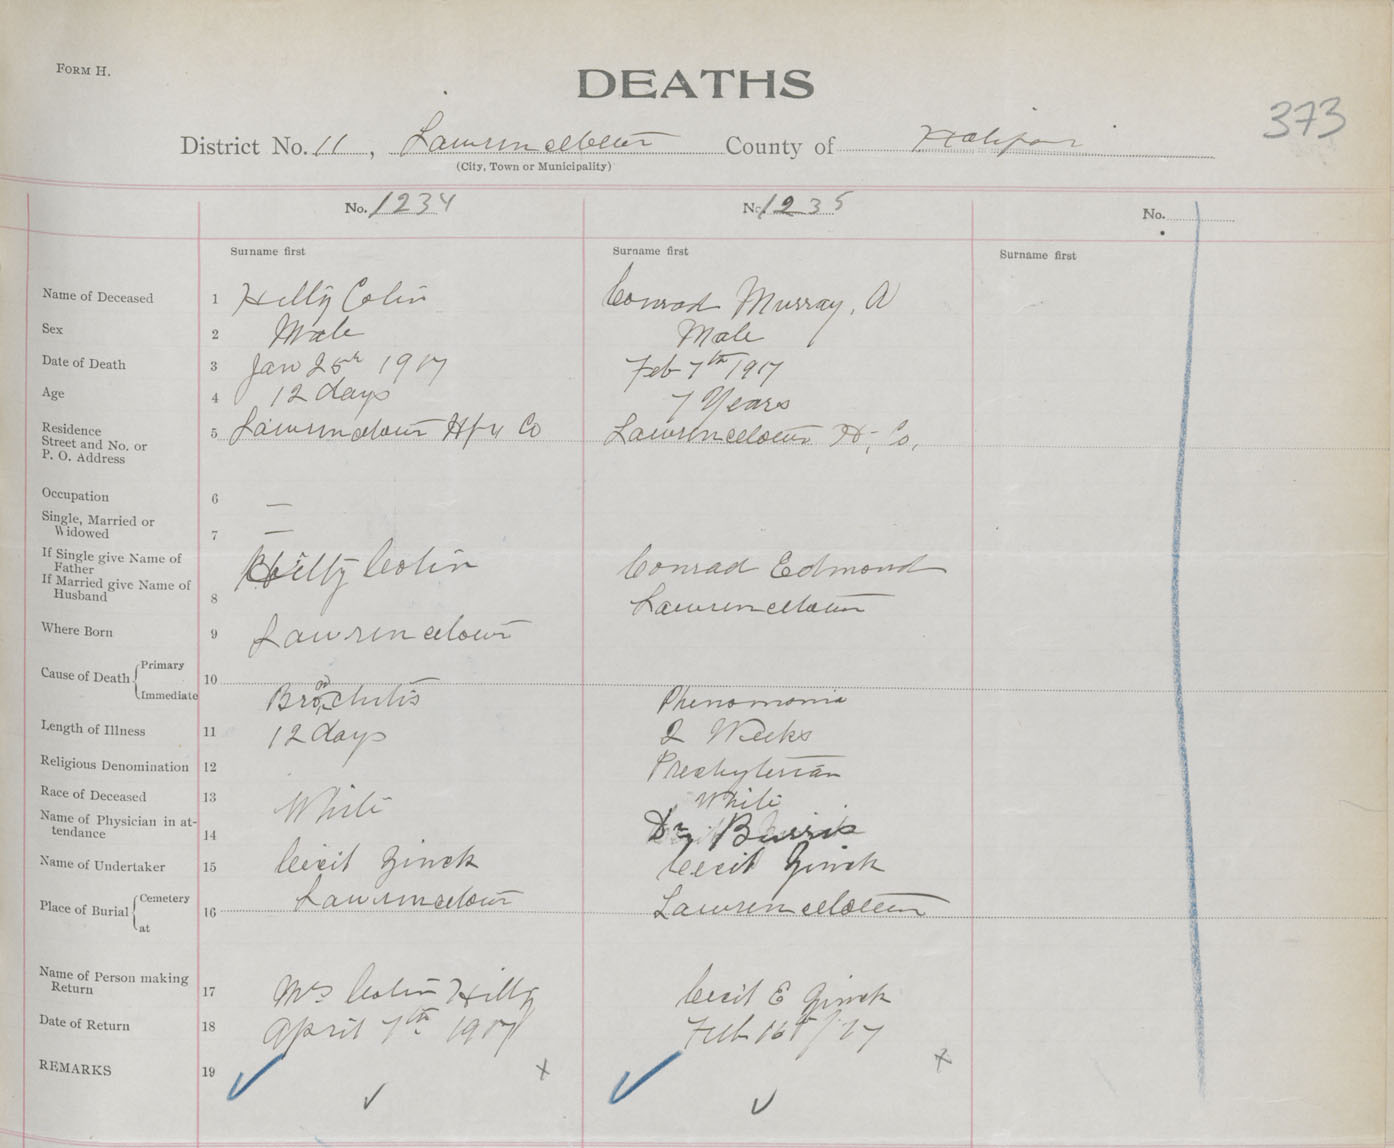 FORM H.
DEATHS
373
District No. 11, Lawrencetown County of Halifax
(City, Town or Municipality)
No. 1234 No. 1235 No.
Surname first Surname first Surname first
Name of Deceased 1 Hilly Colin Conrad Murray, A
Sex 2 Male Male
Date of Death 3 Jan 25th 1917 Feb 7th 1917
Age 4 12 days 7 Years
Residence
Street and No. or 5 Lawrencetown Hfx Co Lawrencetown H, Co,
P. O. Address
Occupation 6 —
Single, Married or
Widowed 7 —
If Single give Name of
Father Hilly Colin Conrad Edmond
If Married give Name of
Husband 8 Lawrencetown
Where Born 9 Lawrencetown
Cause of Death Primary 10
Immediate Bronchitis Phenomonia
Length of Illness 11 12 days 2 Weeks
Religious Denomination 12 Presbyterian
Race of Deceased 13 White White
Name of Physician in at-
tendance 14 Dr Burris
Name of Undertaker 15 Cecil Zinck Cecil Zinck
Place of Burial Cemetery 16 Lawrencetown Lawrencetown
at
Name of Person making
Return 17 Mrs Colin Hilly Cecil E Zinck
Date of Return 18 April 7th 1917 Feb 16th/17
REMARKS 19 x x